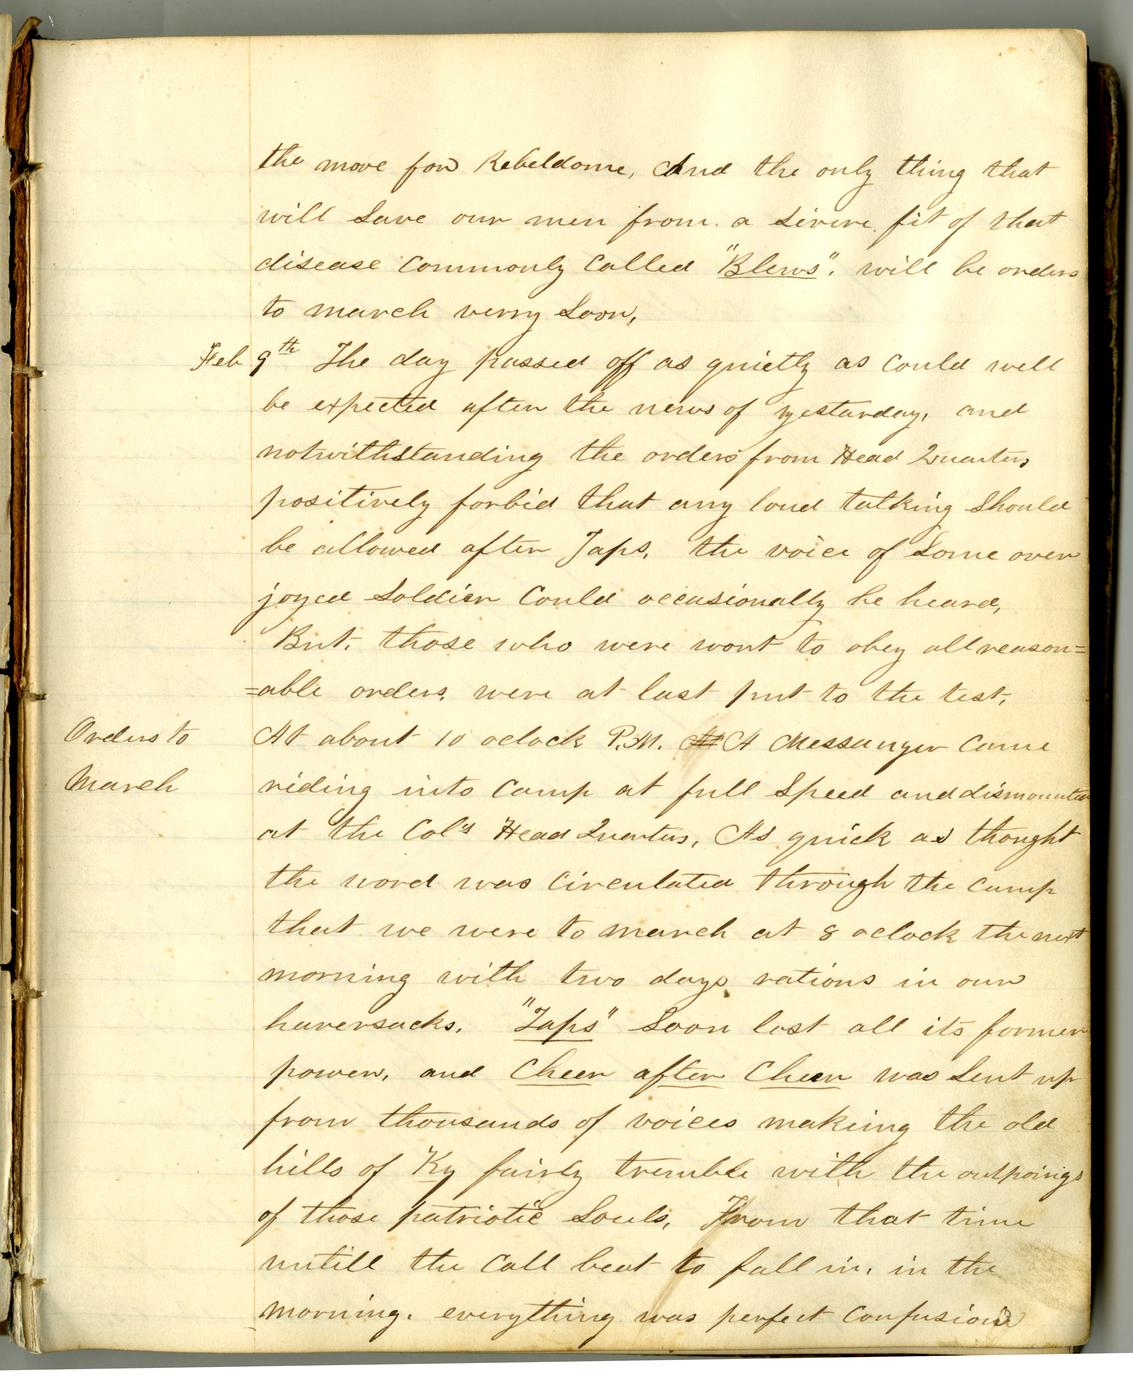 the move for Rebeldome, And the only thing that
will save our men from a sivere fit of that
disease commonly called "Blews". will be orders
to march verry soon,
Feb 9th The day passed off as quietly as could well
be expected after the news of yestarday, and
notwithstanding the orders from Head Quarters
positively forbid that any loud talking should
be allowed after Taps. the voice of some over
joyed soldier could occasionally be heard,
But, those who were wont to obey all reason=
=able orders were at last put to the test,
Orders to
March
At about 10 oclock P.M. A Messanger came
riding into camp at full speed and dismounted
at the Col's Head Quarters, As quick as thought
the word was circulated through the camp
that we were to march at 8 oclock the next
morning with two days rations in our
haversacks. "Taps" soon lost all its former
power, and Cheer after Cheer was sent up
from thousands of voices makeing the old
hills of Ky fairly tremble with the outpoings
of those patriotic souls, From that time
untill the call beat to fall in, in the
morning. everything was perfect confusion